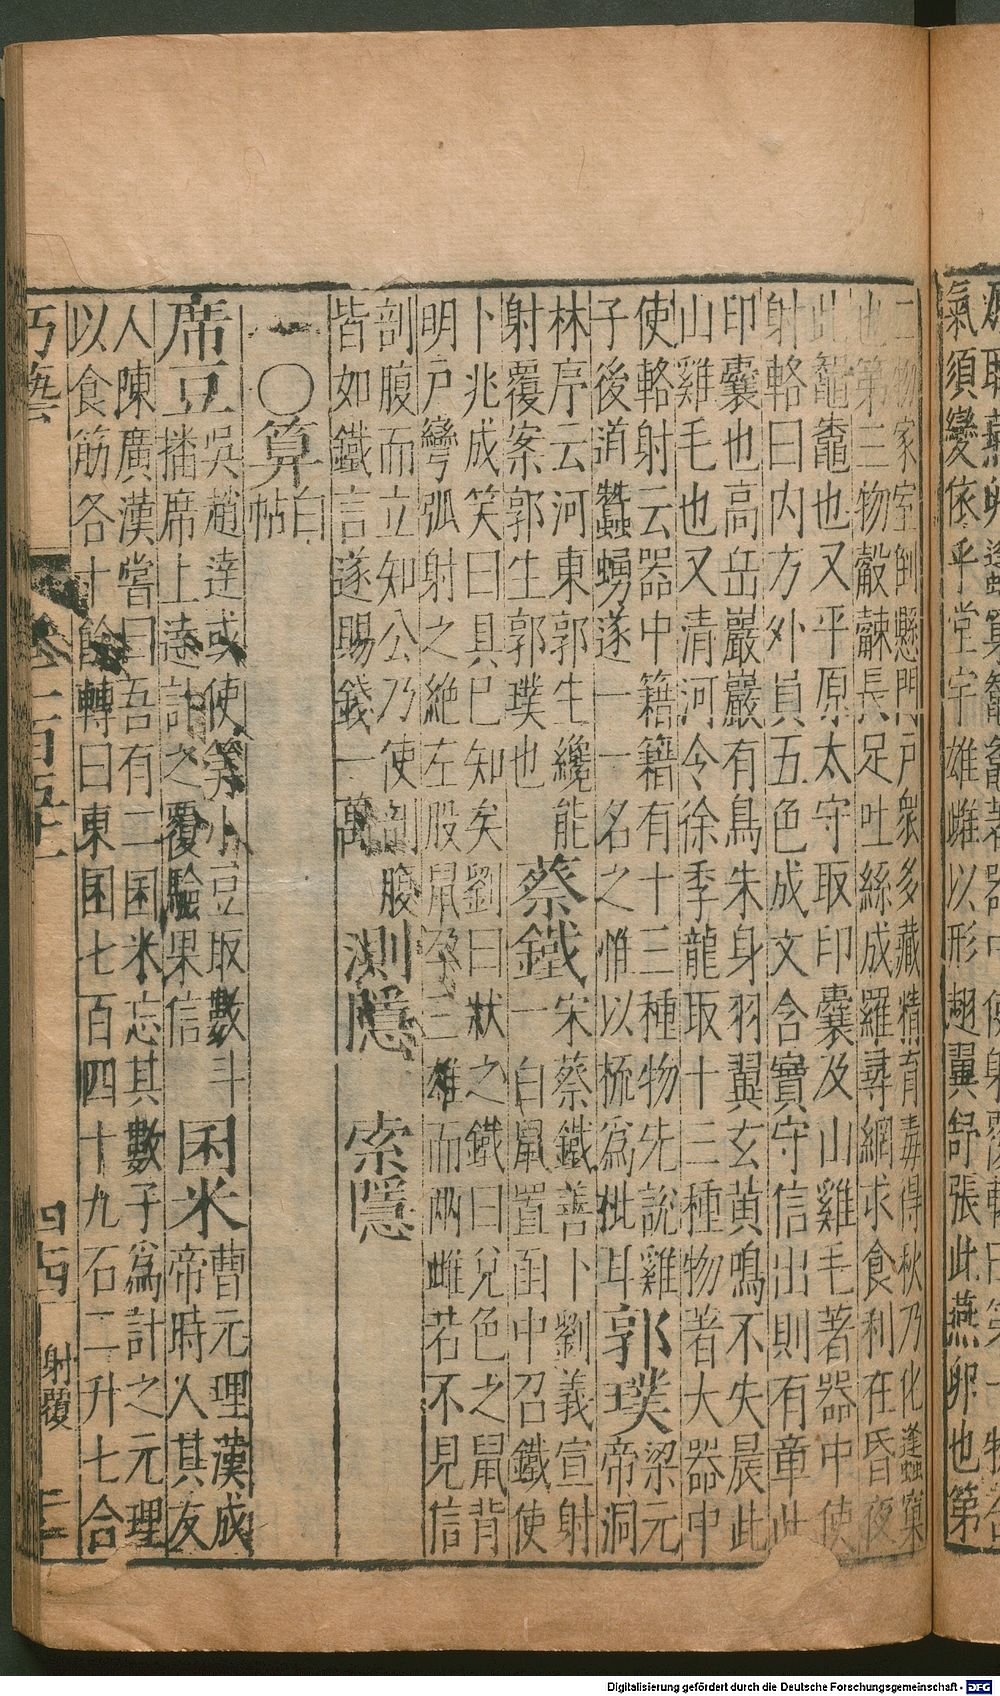 氣須變依乎堂宇雄雌以形翅翼舒張此燕卵也第
二物家室倒懸門戶衆多藏精育毒得秋乃化蠭窠
也第三物觳觫長足吐絲成羅尋網求食利在昏夜
此鼅鼄也又平原太守取印囊及山雞毛著器中使
射輅曰内方外員五色成文含寶守信出則有章此
印囊也高岳巖巖有鳥朱身羽翼玄黄鳴不失晨此
山雞毛也又清河令徐季龍取十三種物著大器中
使輅射云器中籍籍有十三種物先說雞
子後道蠶蛹遂一一名之惟以梳爲枇耳
郭璞
梁元
帝洞
林序云河東郭生纔能
射覆案郭生郭璞也
蔡鐵
宋蔡鐵善卜劉義宣射
一白鼠置函中召鐵使
卜兆成笑曰具已知矣劉曰狀之鐵曰兌色之鼠背
明戶彎弧射之絕左股鼠孕三雄而兩雌若不見信
剖腹而立知公乃使剖腹
皆如鐵言遂賜錢一萬
測隱 索隱
一〇算
白
帖
席豆
吳趙達或使筭小豆取數斗
播席上遠計之覆驗果信
囷米
曹元理漢成
帝時人其友
人陳廣漢嘗曰吾有二囷米忘其數子爲計之元理
以食筋各十餘轉曰東囷七百四十九石二升七合
射覆
Digitalisierung gefördert durch die Deutsche Forschungsgemeinschaft - DFG